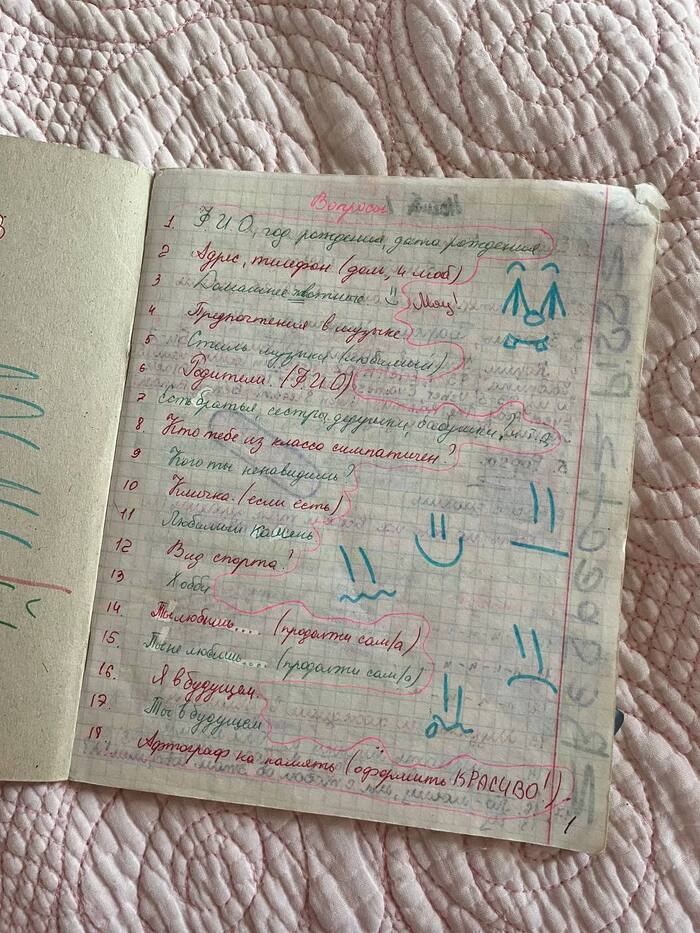 Вопросы
1. Ф И О, год рождения, дата рождения
2 Адрес, телефон (дом, и моб)
3 Домашнее животные Мяу!
4 Предпочтения в музыке
5 Стиль музыки (любимый)
6 Родители! (Ф И О)
7 Есть братья, сестры, дедушки, бабушки, и.т.д
8 Кто тебе из класса симпатичен?
9 Кого ты ненавидишь?
10 Кличка. (если есть)
11 Любимый камень
12 Вид спорта?
13 Хобби
14. Ты любишь.... (продолжи сам/а)
15. Ты не любишь.... (продолжи сам/а)
16. Я в будущем.
17. Ты в будущем
18 Афтограф на память (оформить КРАСИВО!)
1